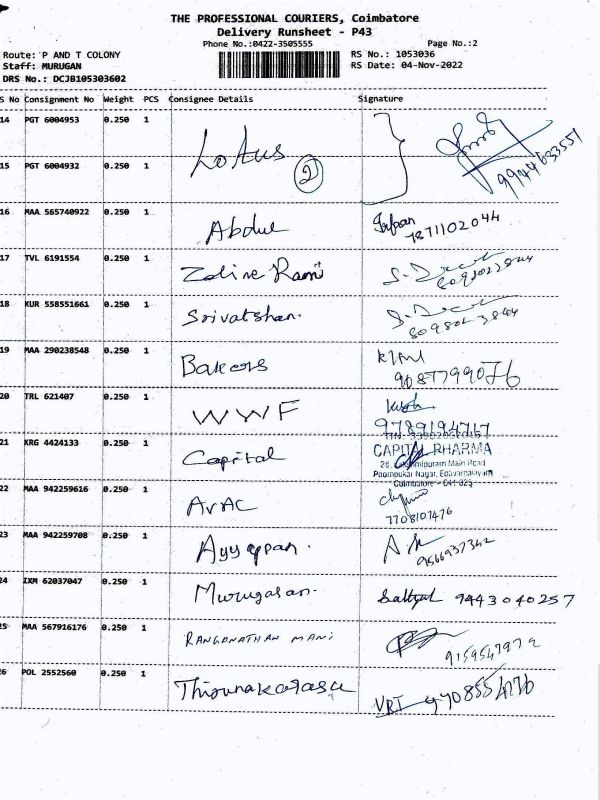 THE PROFESSIONAL COURIERS, Coimbatore
Delivery Runsheet - P43
Phone No.:0422-3505555 Page No.:2
Route: P AND T COLONY RS No.: 1053036
Staff: MURUGAN RS Date: 04-Nov-2022
DRS No.: DCJB105303602
S No Consignment No Weight PCS Consignee Details Signature
14 PGT 6004953 0.250 1
Lotus 2 9944633551
15 PGT 6004932 0.250 1
16 MAA 565740922 0.250 1 Abdul Irfaan
7871102044
17 TVL 6191554 0.250 1
18 KUR 558551661 0.250 1 Srivatshan.
19 MAA 290238548 0.250 1 Bakers
9087799076
20 TRL 621407 0.250 1 WWF
9789194747
21 KRG 4424133 0.250 1 Capital CAPITAL PHARMA
Main Road
Poompukar Nagar, Edayarpalayam
Coimbatore - 641 025
22 MAA 942259616 0.250 1 AVAC
7708107476
23 MAA 942259708 0.250 1 Ayyappan.
9566937342
24 IXM 62037047 0.250 1 Murugasan. 9443040257
25 MAA 567916176 0.250 1 RANGANATHAN MANI
9159547972
26 POL 2552560 0.250 1 Thirunakarasu VBT